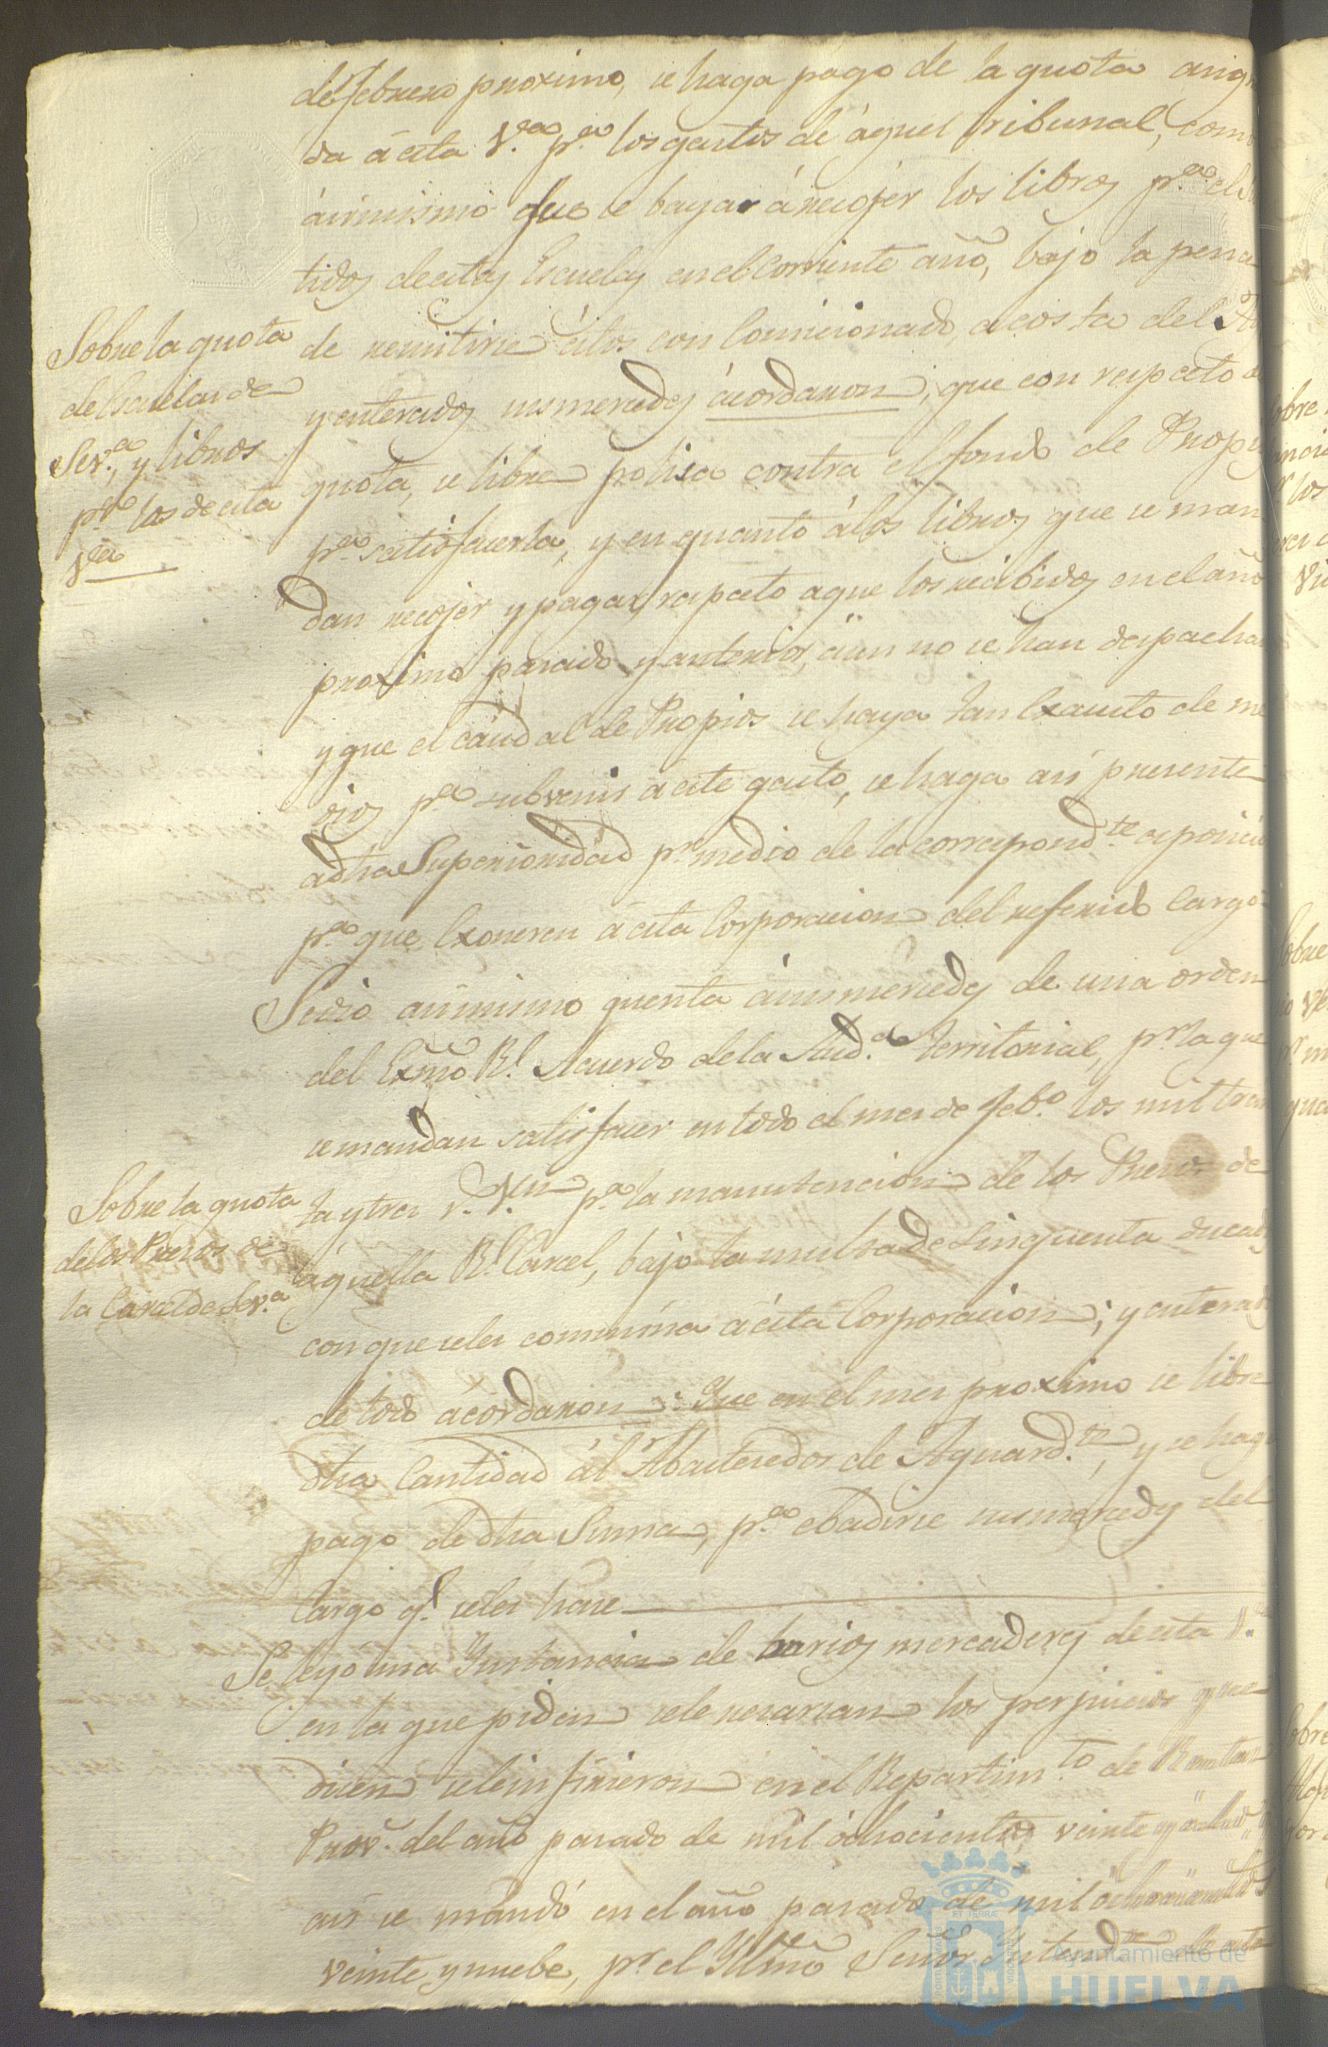 de Febrero proximo, se haga pago de la quota asig
da á esta V.ª p.ª los gastos de aquel Tribunal, com
ásimismo que se bayan á recojer los libros p.ª el
tidos de estas Escuelas en el Corriente año, bajo la pena
de remitirse éstos con Comicionado, a costa del
y enterados sus mercedes ácordaron, que con respecto
quota, se libre polisa contra el fondo de Propi
p.ª satisfacerla, y en quanto á los libros que se man
dan recojer y pagar, respecto a que los recibidos en el año
proximo pasado y anterior, aún no se han despacha
y que el caudal de Propios se haya tan Exausto de me
dios p.ª subvenir á este gasto, se haga así presente
a dha Superioridad pr. medio de la correspond.te esposició
p.ª que Exoneren á esta Corporacion del referido Cargo
Se dio asimismo quenta á sus mercedes de una orden
del Exmo R.l Acuerdo de la Aud.ª territorial, pr. la que
se mandan satisfacer en todo el mes de Feb.º los mil trein
ta y tres r.s V.on p.ª la manutencion de los Presos de
aquella R.l Carcel, bajo la multa de sinquenta ducados
con que seles conmina á esta Corporacion; y enterad
de todo ácordaron: Que en el mes proximo se libre
dha Cantidad ál Abastecedor de Aguard.te, y se haga
pago de dha Suma, p.ª ebadirse sus mercedes del
Cargo q.e seles hase
Se leyo una Instancia de barios mercaderes de esta V.ª
en la que piden sele resarsan los perjuicios que
disen sele infirieron en el Repartim.to de Rentas
Prov.s del año pasado de mil ochocientos veinte y
asi se mandó en el año pasado de mil ochocientos
veinte y nuebe, pr. el Yltmo Señor Intend.te de esta
Sobre la quota
de Escuelas de
Sev.ª, y libros
p.ª las de esta
V.ª
Sobre la quota
de los Presos de
la Carcel de Sev.ª
Ayuntamiento de
HUELVA